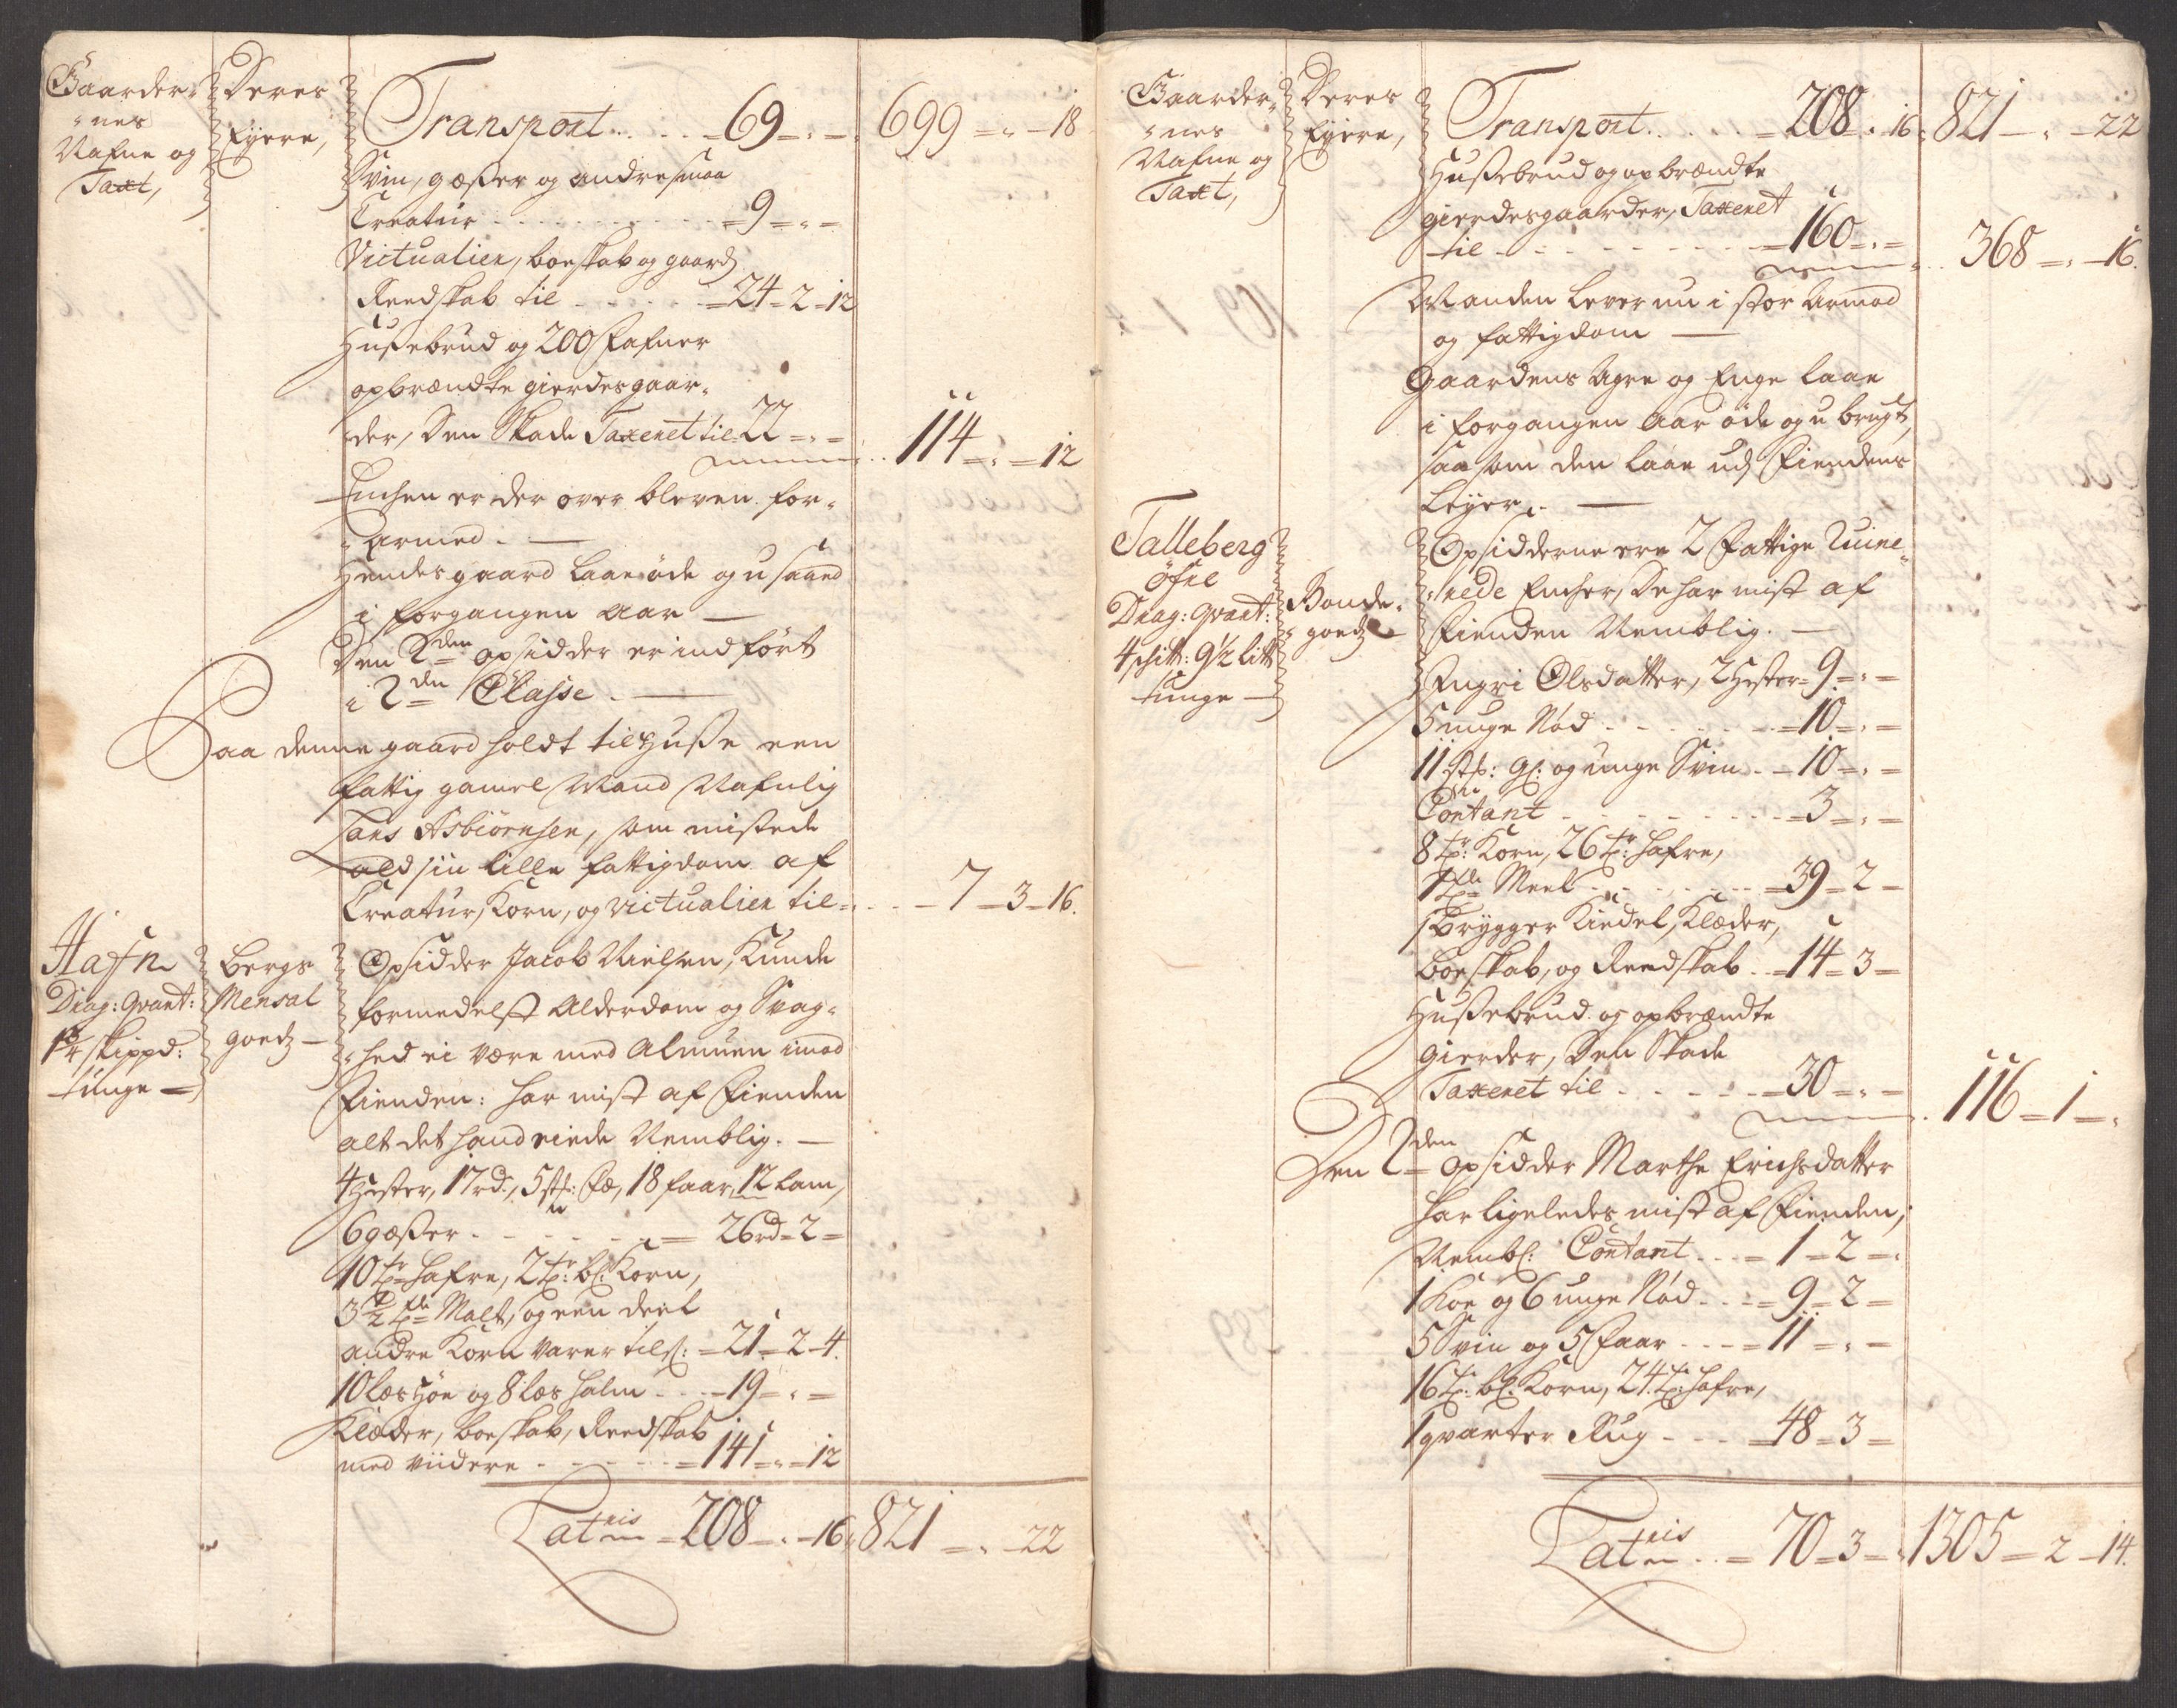 Gaarder-
nes
Nafne og
Taxt,
Deres
Eyere,
Transport . . . . 69 = „ = 699 = „ = 18
Svin, gæsser og andre smaa
Creatur . . . . 9 = „ =
Victualier, boeskab og gaards
Reedskab til . . . . 24 = 2 = 12
Hussebrud og 200 Fafner
opbrændte gierdesgaar-
der, Den Skade Taxeret til 22 = „ = 114 = „ = 12
Enchen er der over bleven for-
armed. —
Hendes gaard laae øde og u saaed
i forgangen aar —
Den 2den opsidder er indført
i 2den Classe. —
Paa denne gaard holdt til Husse een
fattig gamel Mand Nafnlig
Hans Asbiørnsen, som mistede
ald sin lille fattigdom af
Creatur, Korn, og victualier til . . 7 = 3 = 16.
Hafn
Drag: qvart:
1¼ skippd:
tunge —
Bergs
Mensal
goedz —
Opsidder Jacob Nielsen, Kunde
formedelst Alderdom og Svag-
hed ei være med Almuen imod
Fienden: har mist af Fienden
alt det hand eiede Nemblig. —
4 Hester, 17 rd., 5 st: Fæ, 18 faar, 12 lam,
6 gæsser . . . . 26 rd = 2 =
10 tr Hafre, 2 tr: bl: Korn,
3½ tr Malt, og een deel
andre Korn varer til: = 21 = 2 = 4.
10 læs Høe og 8 læs halm . . 19 = „ =
Klæder, boeskab, Reedskab
med viidere . . . . 141 = „ = 12
Lateris = 208 = „ = 16 821 = „ = 22
Gaarder-
nes
Nafne og
Taxt,
Deres
Eyere,
Transport . . . . 208 „ 16 821 = „ = 22
Hussebrud og opbrændte
gierdesgaarder, Taxeret
til . . . . 160 = „ = 368 = „ = 16.
Manden lever nu i stor Armod
og fattigdom —
Gaardens Agre og Enge laae
i forgangen Aar øde og u brugt,
saa som den laae ved Fiendens
Leyer. —
Talleberg
øfre
Drag: qvart:
4 schitt: 9½ litt
tunge —
Bonde-
goedz —
Opsidderne ere 2 Fattige Ruine-
rede Encher, De har mist af
Fienden Nemblig. —
Engri Olsdatter, 2 Hester = 9 = „ =
5 unge Nød . . . . 10 = „ =
11 st: gl: og unge Svin . . 10 = „ =
Contant . . . . 3 = „ =
8 tr: Korn, 26 tr: Hafre,
1 tr Meel . . . . 39 = 2 =
1 brygger Kiedel, Klæder,
boeskab, og Reedskab . . 14 = 3 =
Hussebrud og opbrændte
gierder, Den Skade
Taxeret til . . . . 30 = „ = 116 = 1 = „
Den 2den opsidder Marthe Erichsdatter
har ligeledes mist af Fienden,
Nembl: Contant . . 1 = 2 =
1 Koe og 6 unge Nød . . 9 = 2 =
5 Svin og 5 Faar . . 11 = „ =
16 tr: bl: Korn, 24 tr: Hafre,
1 qvarter Rug . . 48 = 3 =
Lateris . . 70 = 3 = 1305 = 2 = 14.